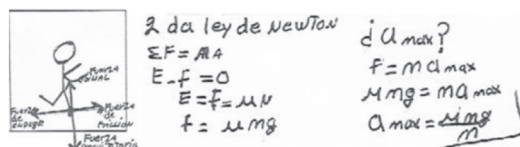 Fuerza
normal
Fuerza
de
empuje
Fuerza
de
fricción
Fuerza
gravitatoria
2 da ley de NewTON
ΣF = MA
E - f = 0
E = f = μN
f = μmg
¿a max?
f = m a max
μmg = m a max
a max = μmg/m